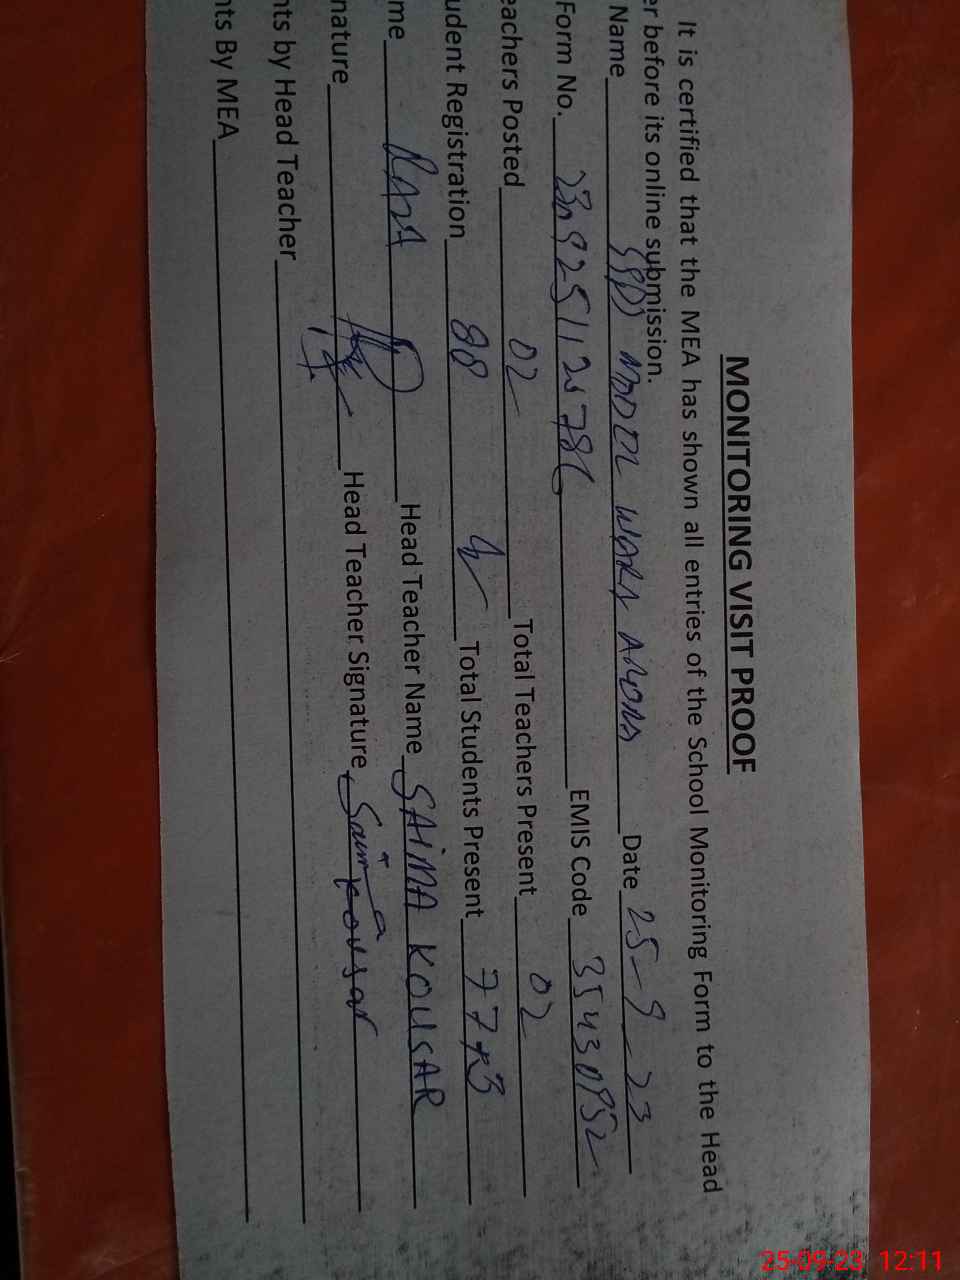 MONITORING VISIT PROOF
It is certified that the MEA has shown all entries of the School Monitoring Form to the Head
er before its online submission.
Name MODEL WARA Date 25-9-23
Form No. EMIS Code 35430952
eachers Posted 02 Total Teachers Present 02
udent Registration 88 Total Students Present 77+3
me Head Teacher Name SAIMA KOUSAR
nature Head Teacher Signature Saima Kousar
nts by Head Teacher
nts By MEA
25-09-23 12:11